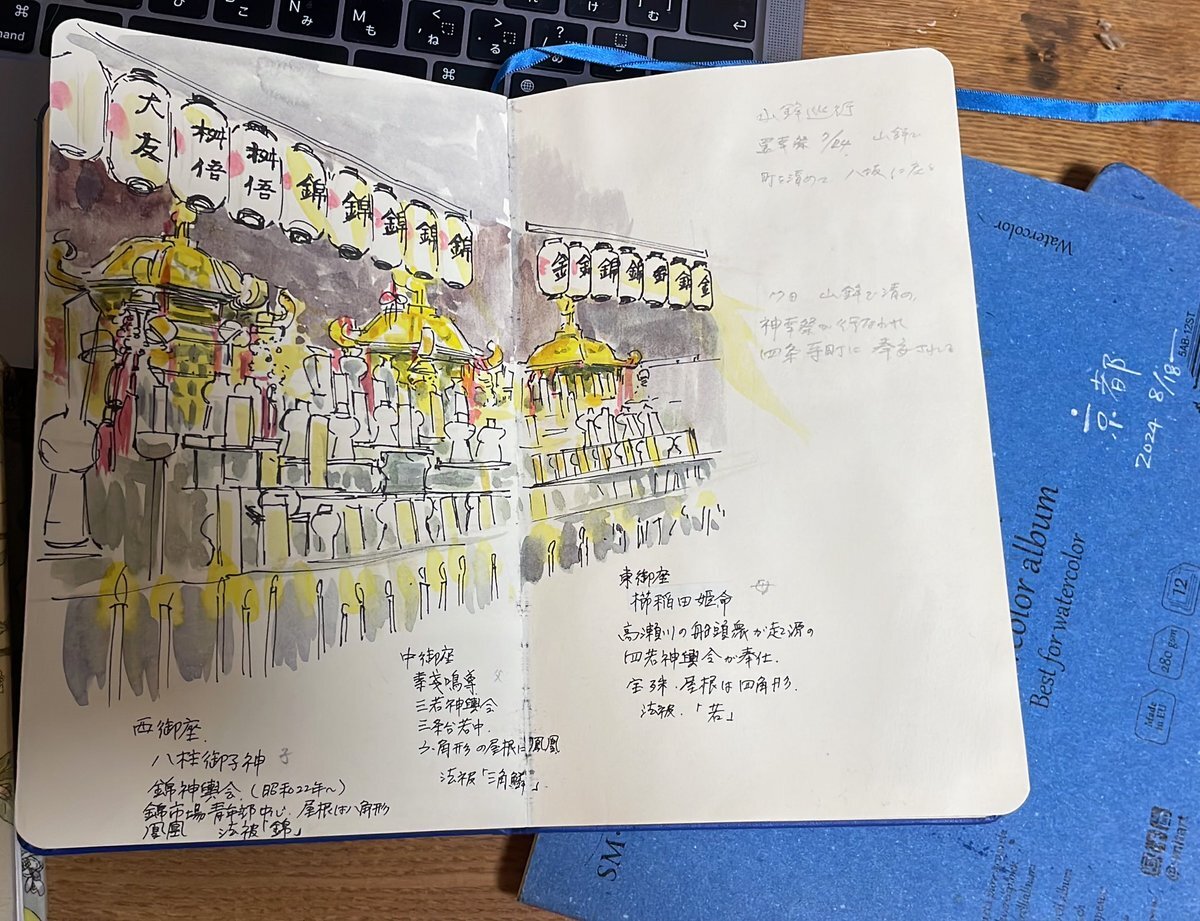 大友
桝悟
桝悟
錦
錦
錦
錦
錦
金
錦
錦
錦
金
山鉾巡行
還幸祭 7/24 山鉾で
町を清めて 八坂に戻る
17日 山鉾で清め、
神幸祭が行なわれ
四条寺町に奉安される
東御座
櫛稲田姫命
高瀬川の船頭衆が起源の
四若神輿会が奉仕.
宝珠.屋根は四角形.
法被.「若」
中御座
素戔嗚尊 父
三若神輿会
三条台若中
六角形の屋根に鳳凰
法被「三角鱗」.
西御座.
八柱御子神 子
錦神輿会(昭和22年〜)
錦市場青年部中心.屋根は八角形
鳳凰 法被「錦」
Watercolor
京都
2024 8/18
5AB-12ST
color album
Best for watercolor
12
280 gsm
Made in EU
SM
@smltart
N
み
M
も
ね
る
け
む
め